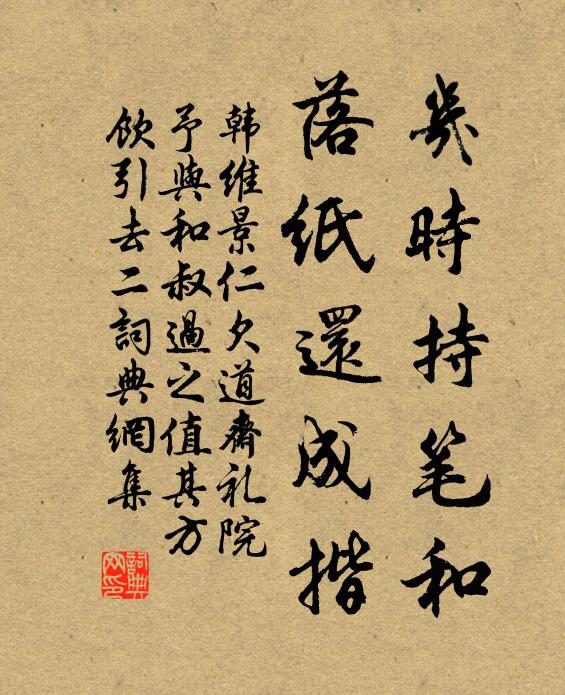 幾時持笔和
落紙還成揩
韩維景仁久道齋礼院
予與和叔過之值其方
飲引去二詞典網集
詞典网印